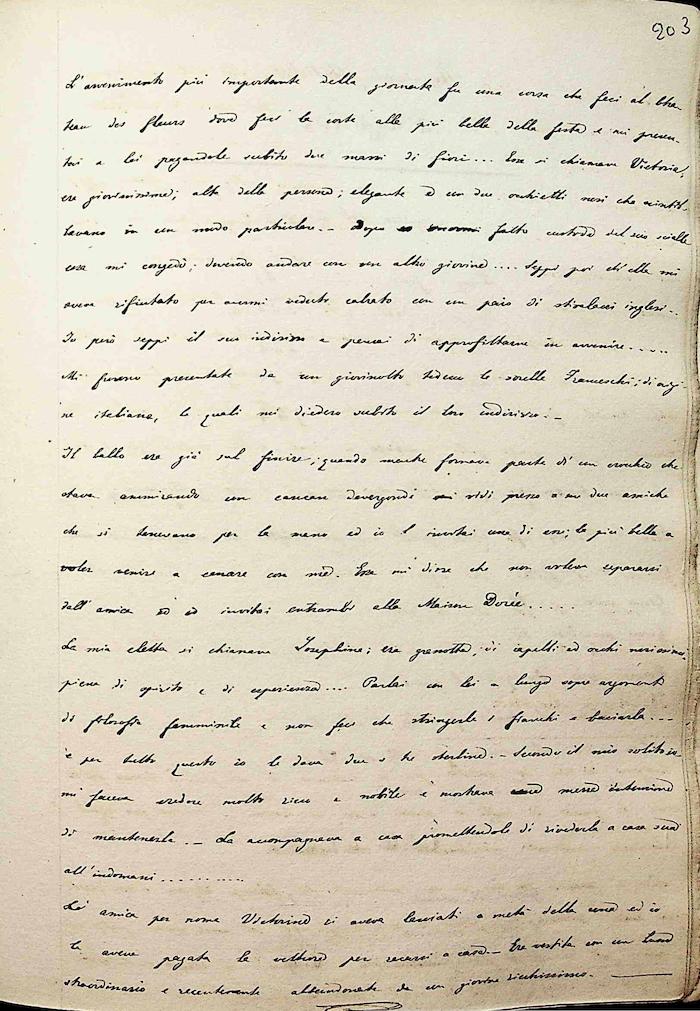 203
L'avvenimento più importante della giornata fu una corsa che feci al Cha-
teau des fleurs dove feci la corte alla più bella della festa e mi presen-
tai a lei pagandole subito due mazzi di fiori... Essa si chiamava Victoria,
era giovanissima; alta della persona; elegante e con due occhietti neri che scintil-
lavano in un modo particolare. - Dopo fatto custode del suo scialle
essa mi congedò; dovendo andare con un altro giovine.... Seppi poi ch'ella mi
aveva rifiutato per avermi veduto calzato con un paio di stivalacci inglesi..
Io però seppi il suo indirizzo e pensai di approfittarne in avvenire.....
Mi furono presentate da un giovinotto tedesco le sorelle Franceschi; di origi-
ne italiana, le quali mi diedero subito il loro indirizzo. -
Il ballo era già sul finire; quando mentre formava parte di un crocchio che
stava ammirando un cancan vidi presso a me due amiche
che si tenevano per la mano ed io invitai una di esse; la più bella a
voler venire a cenare con me. Essa mi disse che non voleva separarsi
dall'amica ed io invitai entrambi alla Maison Dorée......
La mia eletta si chiamava Josephine; era grassotta, di capelli ed occhi nerissimi.
piena di spirito e di esperienza.... Parlai con lei a lungo sopra argomenti
di filosofia femminile e non feci che stringerle i fianchi e baciarla...
e per tutto questo io le dava due o tre sterline. - Secondo il mio solito io
mi faceva credere molto ricco e nobile e mostrava mezza intenzione
di mantenerla. - La accompagnava a casa promettendole di rivederla a casa sua
all'indomani..........
L'amica per nome Victorine ci aveva lasciati a metà della cena ed io
le aveva pagata la vettura per recarsi a casa. - Era vestita con un lusso
straordinario e recentemente abbandonata da un giovine ricchissimo. -